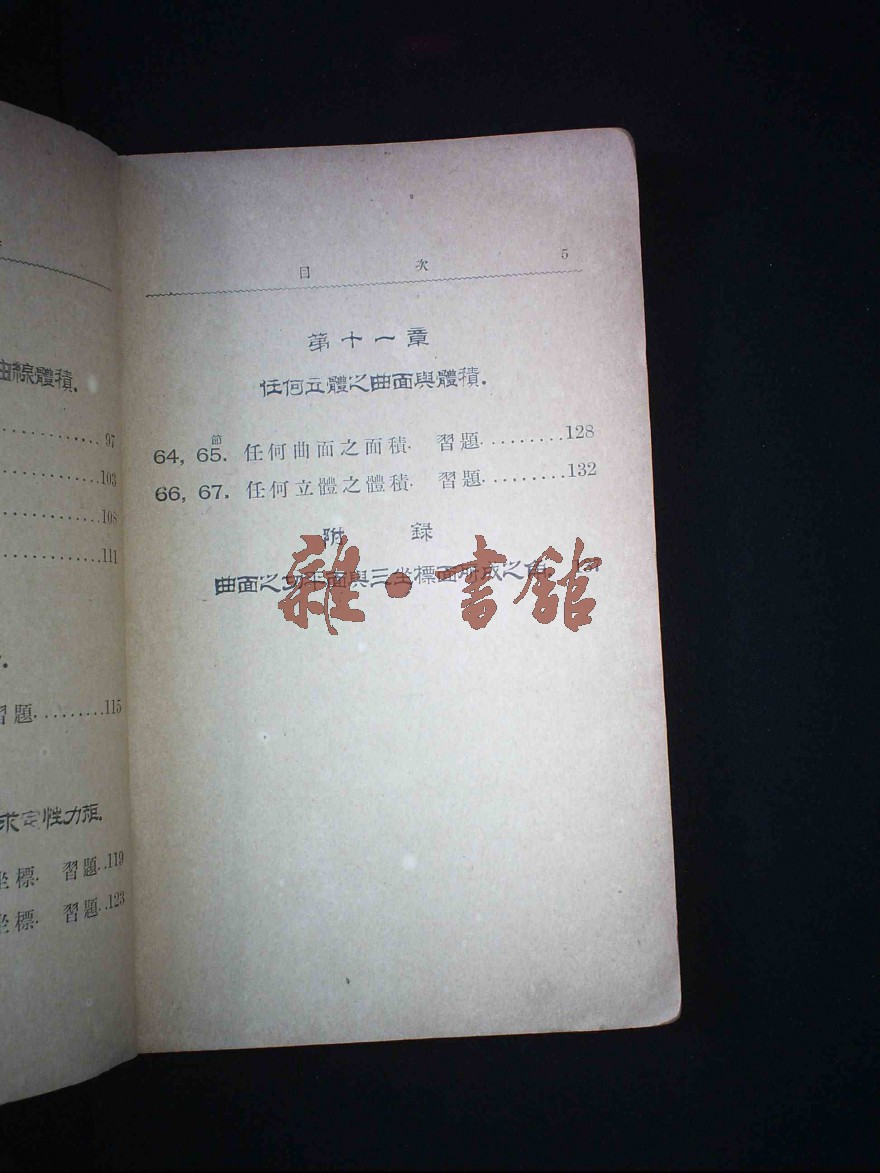 曲線體積.
97
103
108
111
習題.........115
求定性力距.
坐標. 習題..119
坐標. 習題..123
目 次 5
第十一章
任何立體之曲面與體積.
節
64, 65. 任何曲面之面積. 習題.........128
66, 67. 任何立體之體積. 習題.........132
附 錄
曲面之切平面與三坐標面所成之角
雜·書館